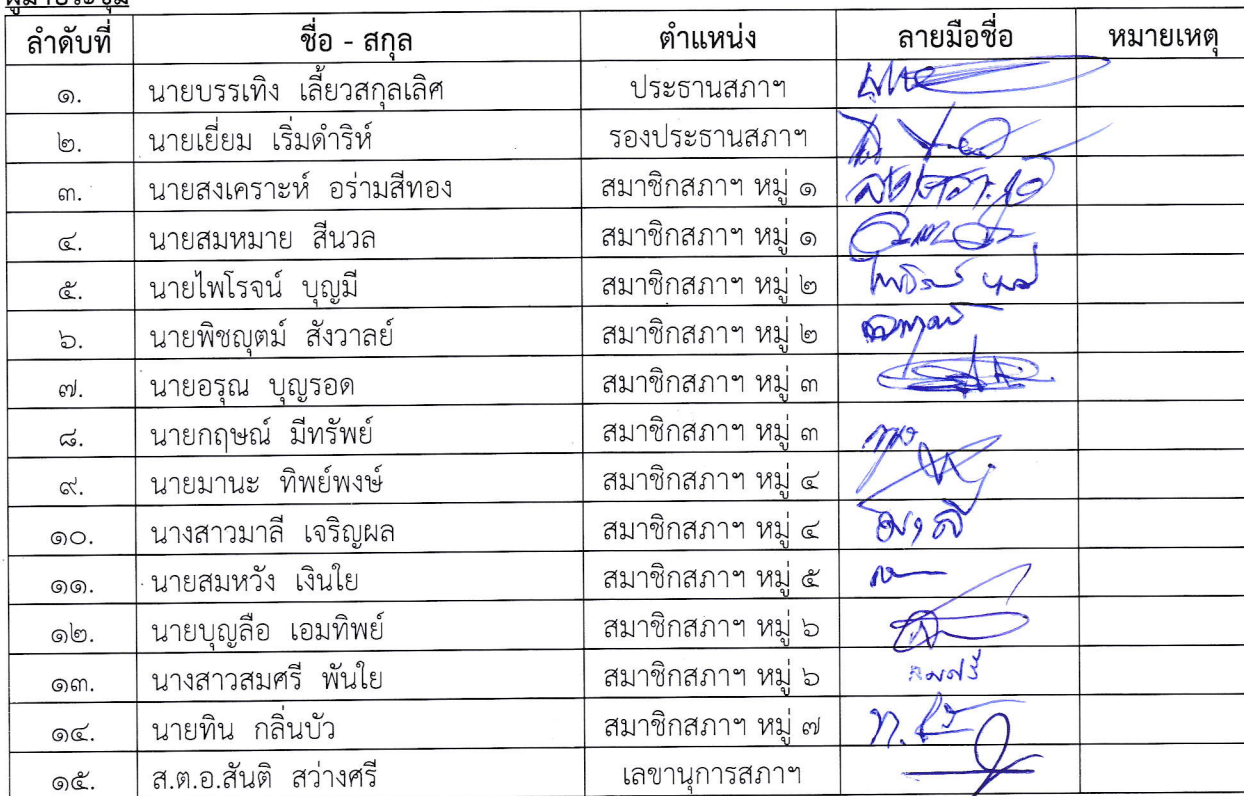 ผู้มาประชุม
ลำดับที่ ชื่อ - สกุล ตำแหน่ง ลายมือชื่อ หมายเหตุ
๑. นายบรรเทิง เลี้ยวสกุลเลิศ ประธานสภาฯ
๒. นายเยี่ยม เริ่มดำริห์ รองประธานสภาฯ
๓. นายสงเคราะห์ อร่ามสีทอง สมาชิกสภาฯ หมู่ ๑
๔. นายสมหมาย สีนวล สมาชิกสภาฯ หมู่ ๑
๕. นายไพโรจน์ บุญมี สมาชิกสภาฯ หมู่ ๒
๖. นายพิชญุตม์ สังวาลย์ สมาชิกสภาฯ หมู่ ๒
๗. นายอรุณ บุญรอด สมาชิกสภาฯ หมู่ ๓
๘. นายกฤษณ์ มีทรัพย์ สมาชิกสภาฯ หมู่ ๓
๙. นายมานะ ทิพย์พงษ์ สมาชิกสภาฯ หมู่ ๔
๑๐. นางสาวมาลี เจริญผล สมาชิกสภาฯ หมู่ ๔ มาลี
๑๑. นายสมหวัง เงินใย สมาชิกสภาฯ หมู่ ๕
๑๒. นายบุญลือ เอมทิพย์ สมาชิกสภาฯ หมู่ ๖
๑๓. นางสาวสมศรี พันใย สมาชิกสภาฯ หมู่ ๖ สมศรี
๑๔. นายทิน กลิ่นบัว สมาชิกสภาฯ หมู่ ๗
๑๕. ส.ต.อ.สันติ สว่างศรี เลขานุการสภาฯ